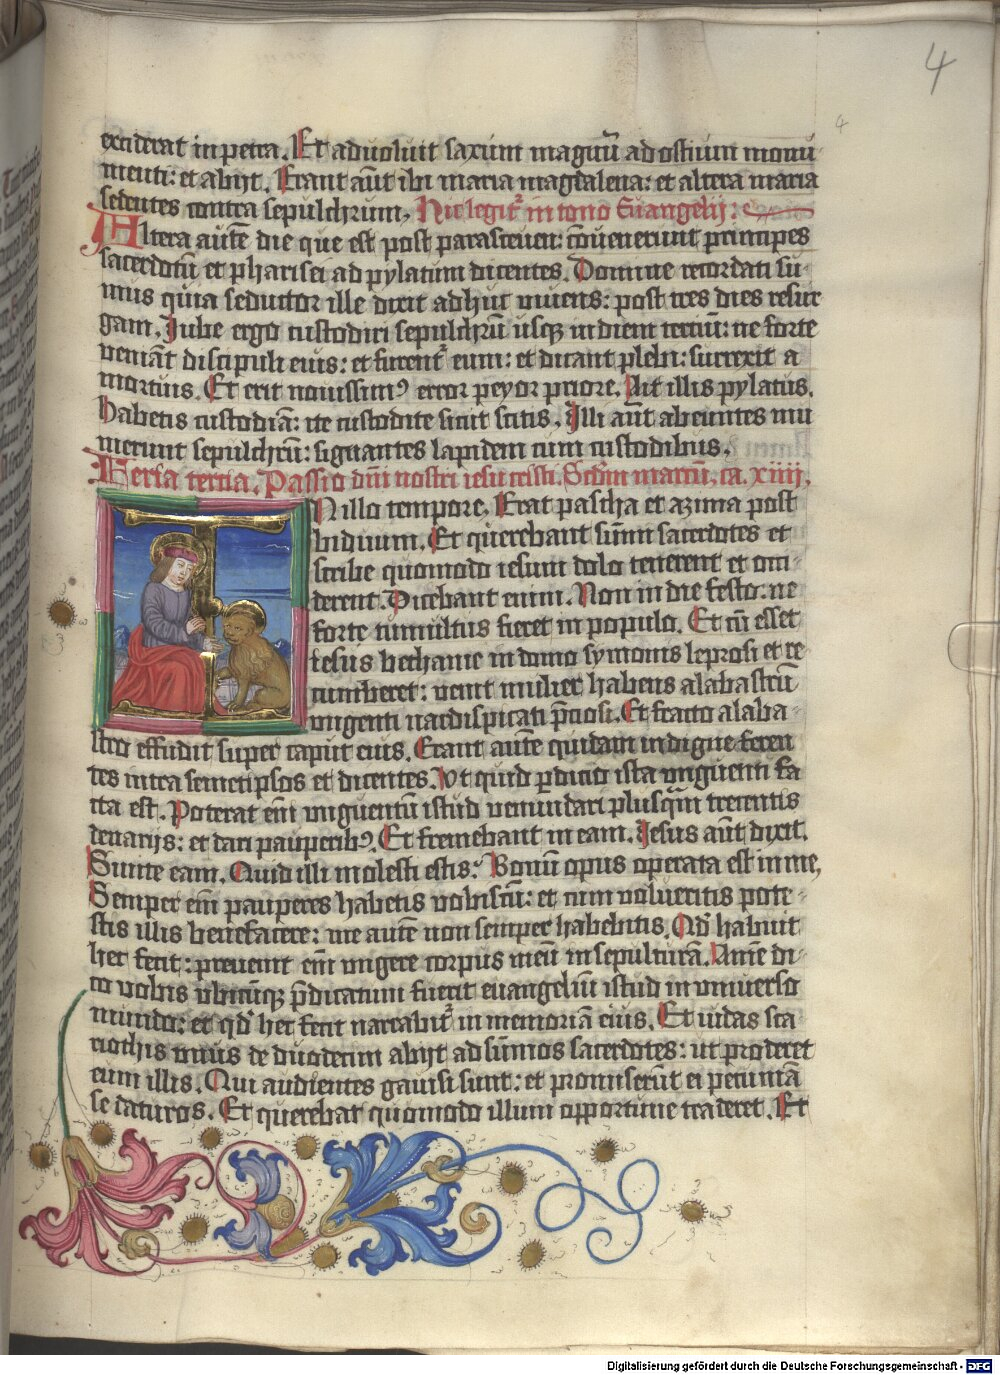 4
4
exciderat in petra. Et aduoluit saxum magnū ad ostium monu
menti: et abijt. Erant aūt ibi maria magdalena: et altera maria
sedentes contra sepulchrum. Hic legit᷑ in tono Euangelij:
Altera autē die que est post parasceuen: cōuenerunt principes
sacerdotū et pharisei ad pylatum dicentes. Domine recordati su-
mus quia seductor ille dixit adhuc viuens: post tres dies resur
gam. Jube ergo custodiri sepulchrū usqꝫ in diem terciū: ne forte
veniāt discipuli eius: et furent᷑ eum: et dicant plebi: surrexit a
mortuis. Et erit nouissimꝰ error peyor priore. Ait illis pylatus.
Habetis custodiā: ite custodite sicut scitis. Illi aūt abeuntes mu
nierunt sepulchrū: signantes lapidem cum custodibus.
Feria tercia. Passio dn̄i nostri iesu cristi. Scd̄m marcū. ca. xiiii.
In illo tempore. Erat pascha et azima post
biduum. Et querebant sūmi sacerdotes et
scribe quomodo iesum dolo tenerent et occi-
derent. Dicebant enim. Non in die festo: ne
forte tumultus fieret in populo. Et cū esset
iesus bethanie in domo symonis leprosi et re
cumberet: venit mulier habens alabastrū
ungenti nardi spicati p̄ciosi. Et fracto alaba-
stro effudit super caput eius. Erant autē quidam indigne feren
tes intra semetipsos et dicentes. Ut quid ꝑdicio ista vnguenti fa
cta est. Poterat em̄ vnguentū istud venundari plusqm̄ trecentis
denarijs: et dari pauperibꝰ. Et fremebant in eam. Jesus aūt dixit.
Sinite eam. Quid illi molesti estis? Bonū opus operata est in me.
Semper em̄ pauperes habetis vobiscū: et cum volueritis pote-
stis illis benefacere: me autē non semper habebitis. Qd̄ habuit
hec fecit: preuenit em̄ vngere corpus meū in sepulturā. Amē di-
co vobis vbicūqꝫ p̄dicatum fuerit euangeliū istud in vniuerso
mundo: et qd̄ hec fecit narrabit᷑ in memoriā eius. Et iudas sca
riothis unus de duodecim abijt ad sūmos sacerdotes: ut proderet
eum illis. Qui audientes gauisi sunt: et promiserūt ei pecuniā
se daturos. Et querebat quomodo illum opportune traderet. Et
Digitalisierung gefördert durch die Deutsche Forschungsgemeinschaft - DFG